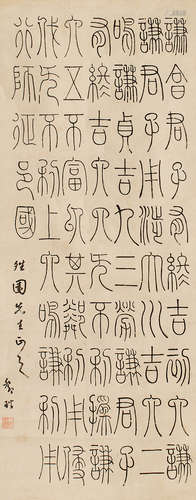 謙亨君子有終吉初六謙
謙君子用涉大川吉六二
鳴謙貞吉九三勞謙君子
有終吉六四无不利撝謙
六五不富以其鄰利用侵
伐无不利上六鳴謙利用
行師征邑國
先生正之